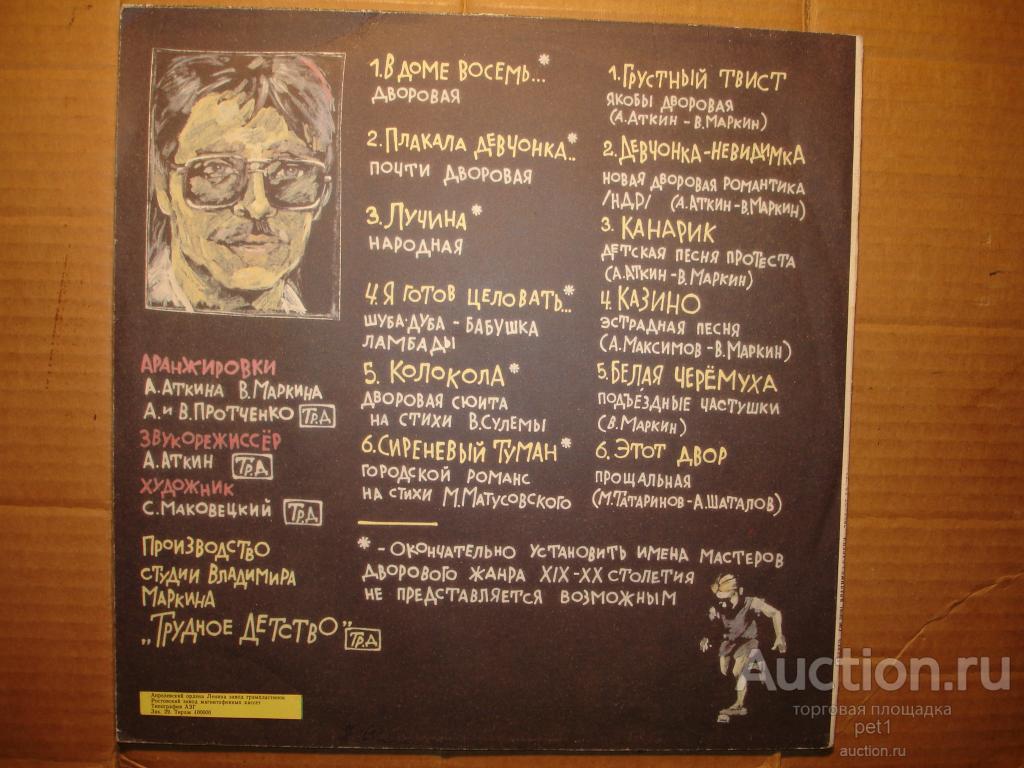 1. В ДОМЕ ВОСЕМЬ...*
ДВОРОВАЯ
2. ПЛАКАЛА ДЕВЧОНКА..*
ПОЧТИ ДВОРОВАЯ
3. ЛУЧИНА*
НАРОДНАЯ
4. Я ГОТОВ ЦЕЛОВАТЬ...*
ШУБА-ДУБА - БАБУШКА
ЛАМБАДЫ
5. КОЛОКОЛА*
ДВОРОВАЯ СЮИТА
НА СТИХИ В.СУЛЕМЫ
6. СИРЕНЕВЫЙ ТУМАН*
ГОРОДСКОЙ РОМАНС
НА СТИХИ М.МАТУСОВСКОГО
1. ГРУСТНЫЙ ТВИСТ
ЯКОБЫ ДВОРОВАЯ
(А.АТКИН - В.МАРКИН)
2. ДЕВЧОНКА-НЕВИДИМКА
НОВАЯ ДВОРОВАЯ РОМАНТИКА
/НДР/ (А.АТКИН-В.МАРКИН)
3. КАНАРИК
ДЕТСКАЯ ПЕСНЯ ПРОТЕСТА
(А.АТКИН-В.МАРКИН)
4. КАЗИНО
ЭСТРАДНАЯ ПЕСНЯ
(А.МАКСИМОВ-В.МАРКИН)
5. БЕЛАЯ ЧЕРЁМУХА
ПОДЪЕЗДНЫЕ ЧАСТУШКИ
(В.МАРКИН)
6. ЭТОТ ДВОР
ПРОЩАЛЬНАЯ
(М.ТАТАРИНОВ-А.ШАТАЛОВ)
АРАНЖИРОВКИ
А.АТКИНА В.МАРКИНА
А. И В.ПРОТЧЕНКО ТР.Д
ЗВУКОРЕЖИССЁР
А.АТКИН ТР.Д
ХУДОЖНИК
С.МАКОВЕЦКИЙ ТР.Д
ПРОИЗВОДСТВО
СТУДИИ ВЛАДИМИРА
МАРКИНА
„ТРУДНОЕ ДЕТСТВО" ТР.Д
* - ОКОНЧАТЕЛЬНО УСТАНОВИТЬ ИМЕНА МАСТЕРОВ
ДВОРОВОГО ЖАНРА XIX-XX СТОЛЕТИЯ
НЕ ПРЕДСТАВЛЯЕТСЯ ВОЗМОЖНЫМ
Апрелевский ордена Ленина завод грампластинок
Ростовский завод магнитофонных кассет
Типография АЗГ
Зак. 29. Тираж 100000
Auction.ru
торговая площадка
pet1
auction.ru